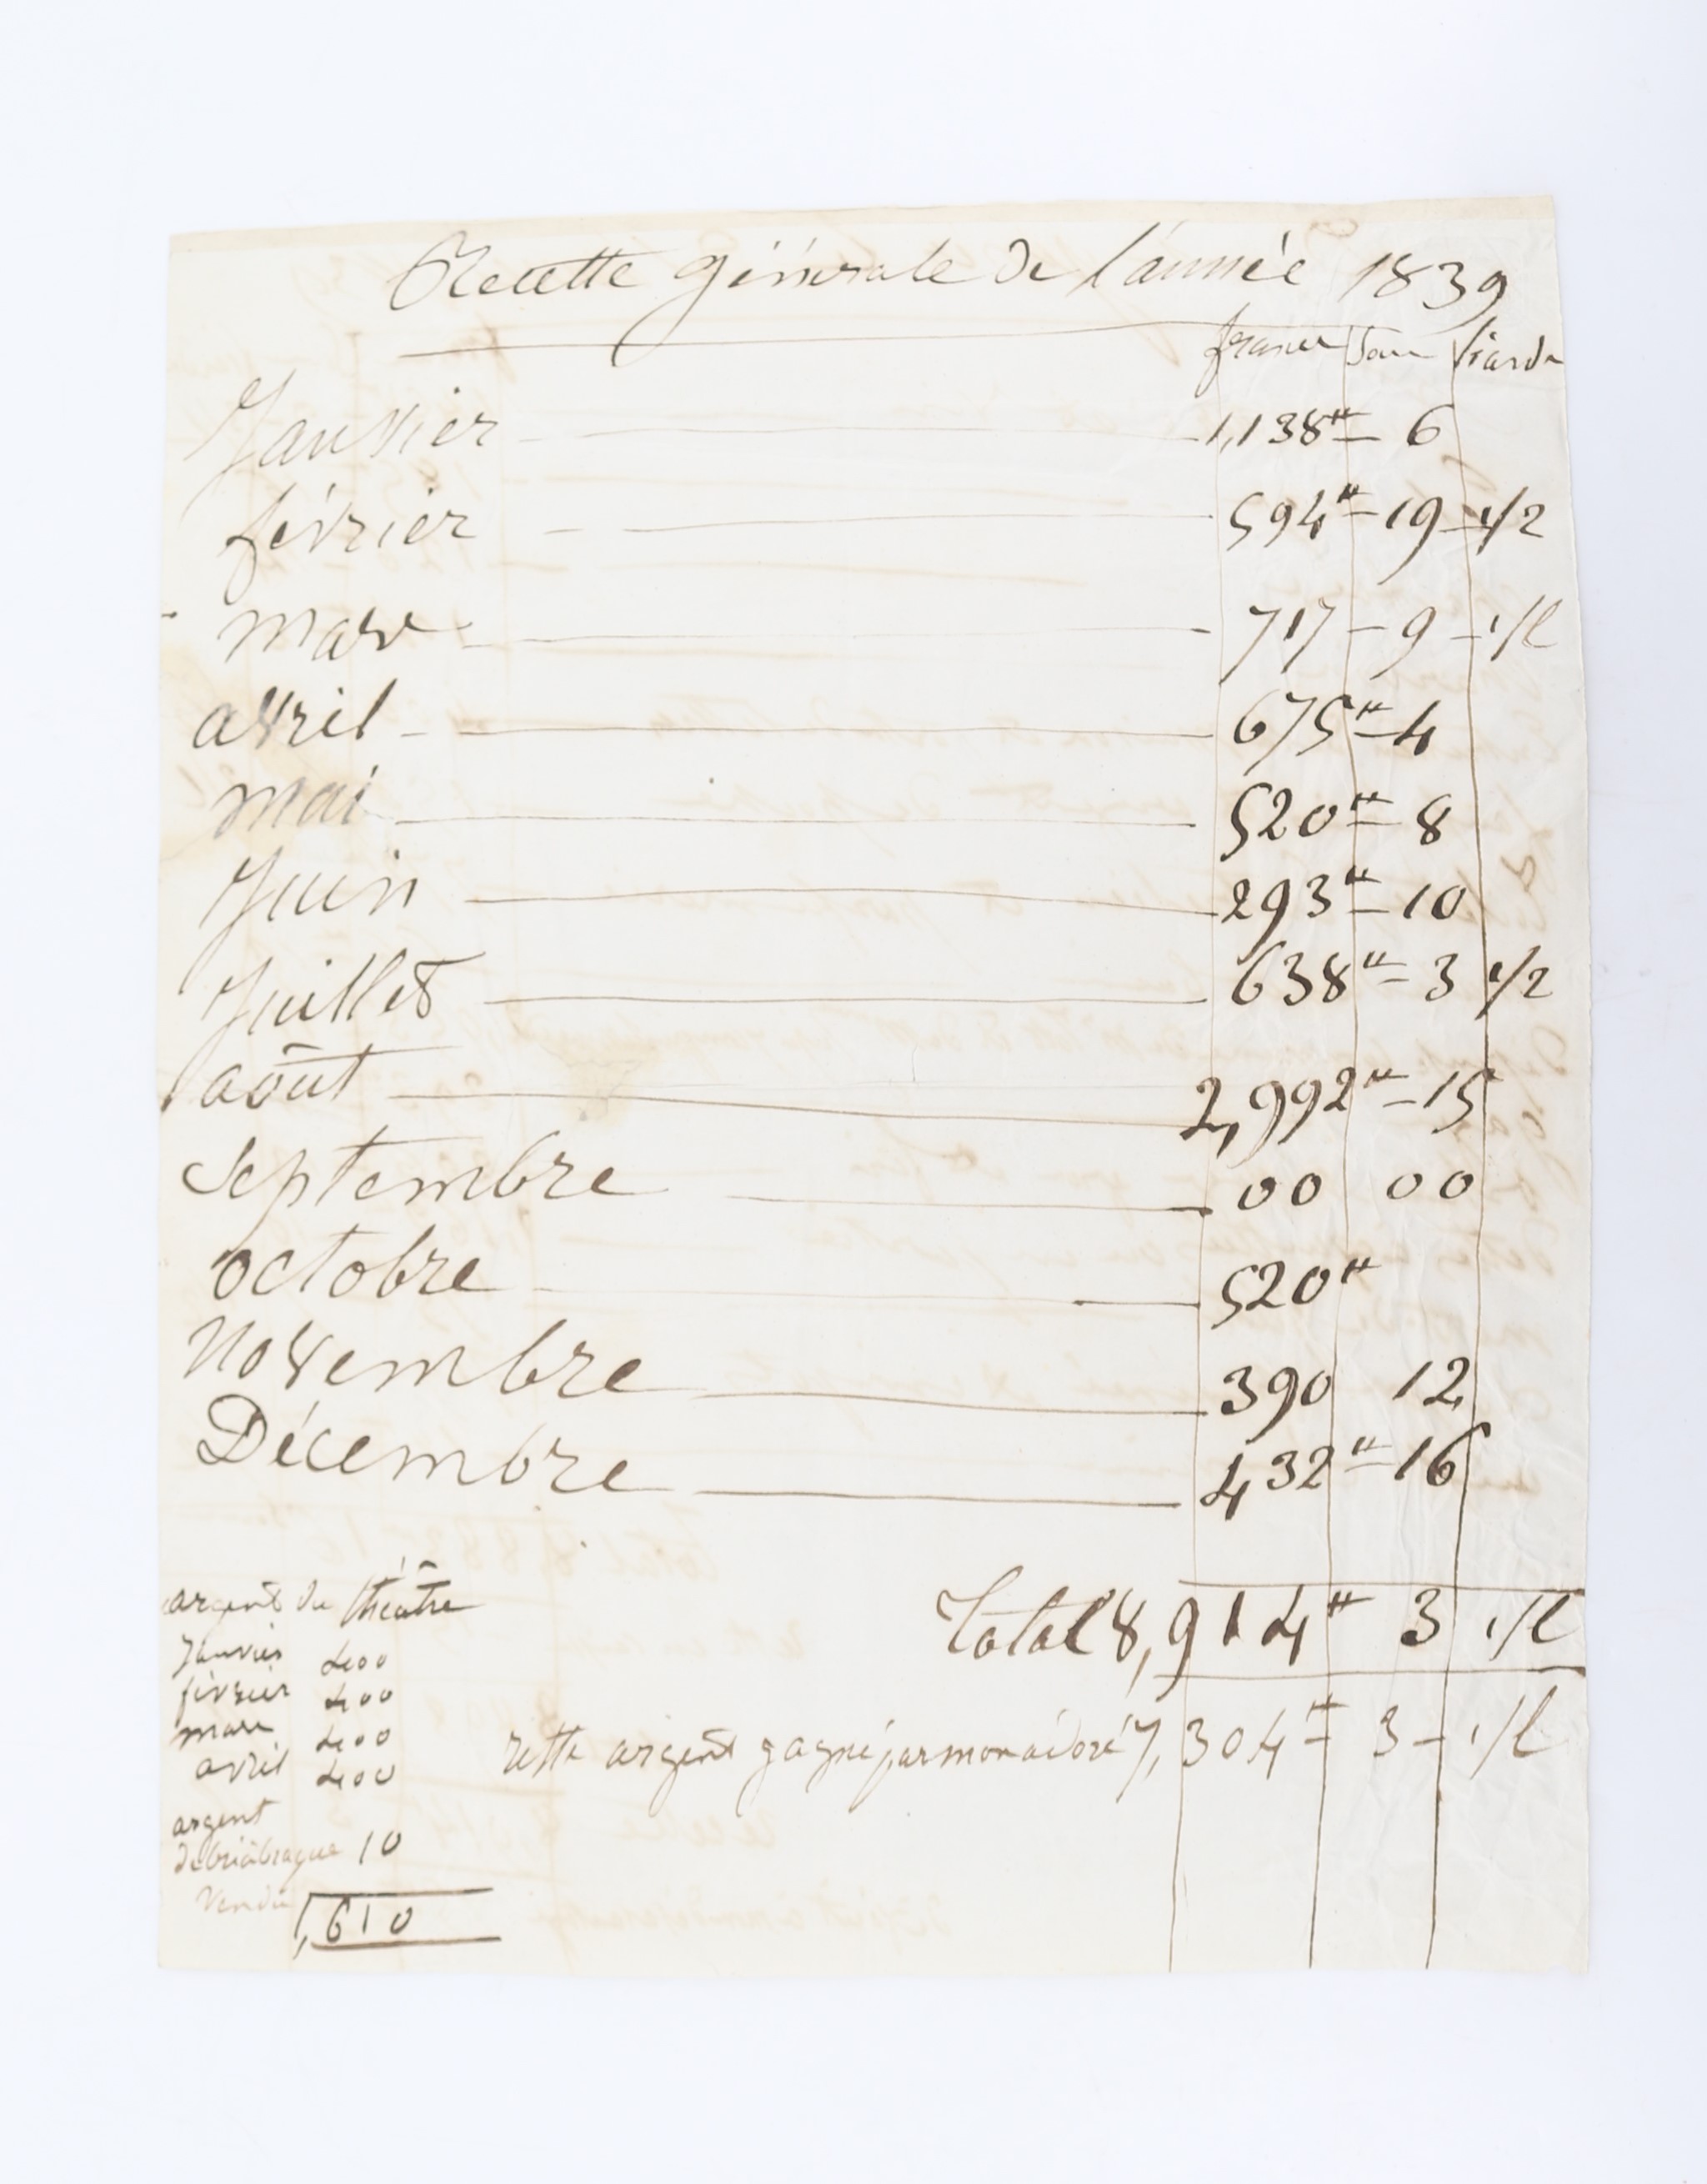 Recette générale de l'année 1839
francs sous liards
Janvier 1,138# 6
février 594# 19 1/2
mars 717 9 1/2
avril 675# 4
mai 520# 8
Juin 293# 10
Juillet 638# 3 1/2
août 2,992# 15
Septembre 00 00
octobre 520#
Novembre 390 12
Décembre 432# 16
Total 8,914# 3 1/2
reste argent gagné par mon adoré 7,304# 3 1/2
argent du théâtre
Janvier 400
février 400
mars 400
avril 400
argent
de bric à braque 10
vendu
1,610